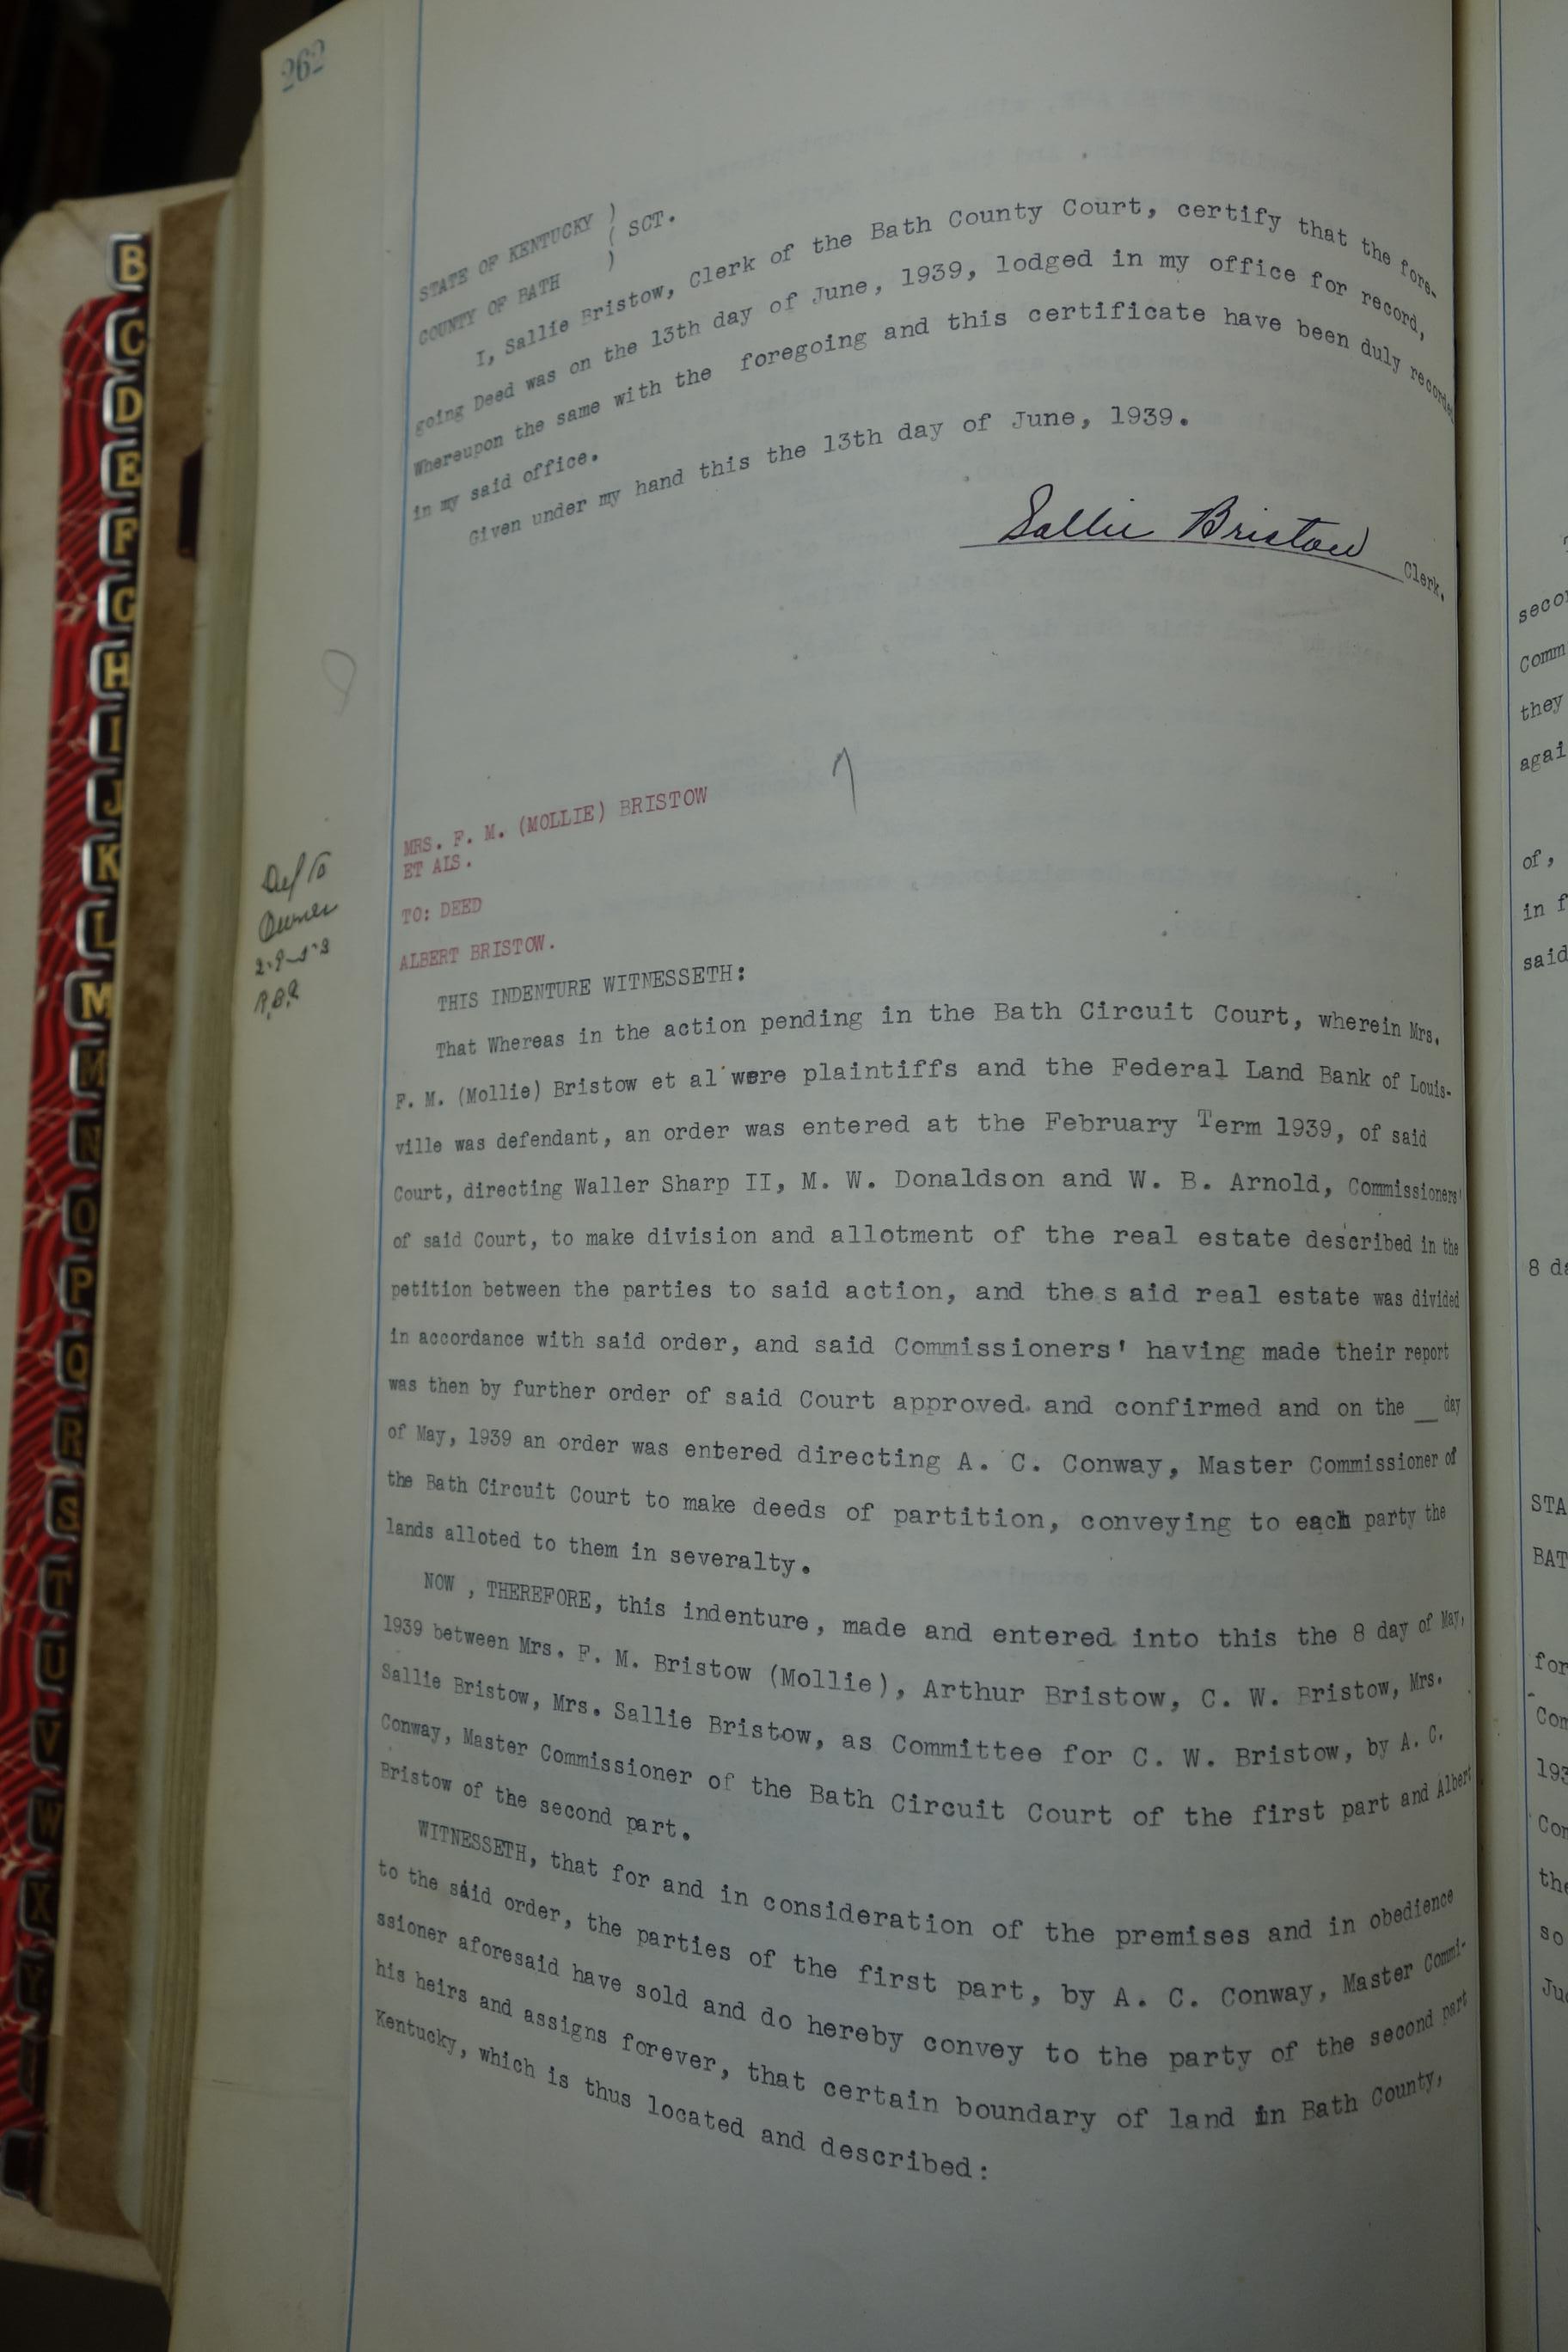 262
STATE OF KENTUCKY )
( SCT.
COUNTY OF BATH )
I, Sallie Bristow, Clerk of the Bath County Court, certify that the fore-
going Deed was on the 13th day of June, 1939, lodged in my office for record,
Whereupon the same with the foregoing and this certificate have been duly recorded
in my said office.
Given under my hand this the 13th day of June, 1939.
Sallie Bristow Clerk.
MRS. F. M. (MOLLIE) BRISTOW
ET ALS.
TO: DEED
ALBERT BRISTOW.
Del to
Owner
2-9-53
THIS INDENTURE WITNESSETH:
That Whereas in the action pending in the Bath Circuit Court, wherein Mrs.
F. M. (Mollie) Bristow et al were plaintiffs and the Federal Land Bank of Louis-
ville was defendant, an order was entered at the February Term 1939, of said
Court, directing Waller Sharp II, M. W. Donaldson and W. B. Arnold, Commissioners'
of said Court, to make division and allotment of the real estate described in the
petition between the parties to said action, and the s aid real estate was divided
in accordance with said order, and said Commissioners' having made their report
was then by further order of said Court approved and confirmed and on the __ day
of May, 1939 an order was entered directing A. C. Conway, Master Commissioner of
the Bath Circuit Court to make deeds of partition, conveying to each party the
lands alloted to them in severalty.
NOW , THEREFORE, this indenture, made and entered into this the 8 day of May,
1939 between Mrs. F. M. Bristow (Mollie), Arthur Bristow, C. W. Bristow, Mrs.
Sallie Bristow, Mrs. Sallie Bristow, as Committee for C. W. Bristow, by A. C.
Conway, Master Commissioner of the Bath Circuit Court of the first part and Albert
Bristow of the second part.
WITNESSETH, that for and in consideration of the premises and in obedience
to the said order, the parties of the first part, by A. C. Conway, Master Commi-
ssioner aforesaid have sold and do hereby convey to the party of the second part
his heirs and assigns forever, that certain boundary of land in Bath County,
Kentucky, which is thus located and described:
B
C
D
E
F
G
H
I
J
K
L
M
M
N
O
P
Q
R
S
T
U
V
W
X
Y
secon
Comm
they
agai
of,
in f
said
8 da
STA
BAT
for
Com
193
Con
the
so
Ju